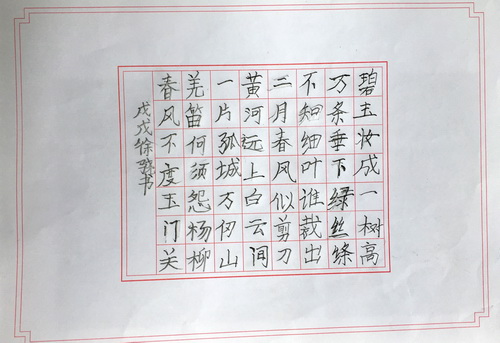 碧玉妆成一树高
万条垂下绿丝绦
不知细叶谁裁出
二月春风似剪刀
黄河远上白云间
一片孤城万仞山
羌笛何须怨杨柳
春风不度玉门关
戊戌徐書